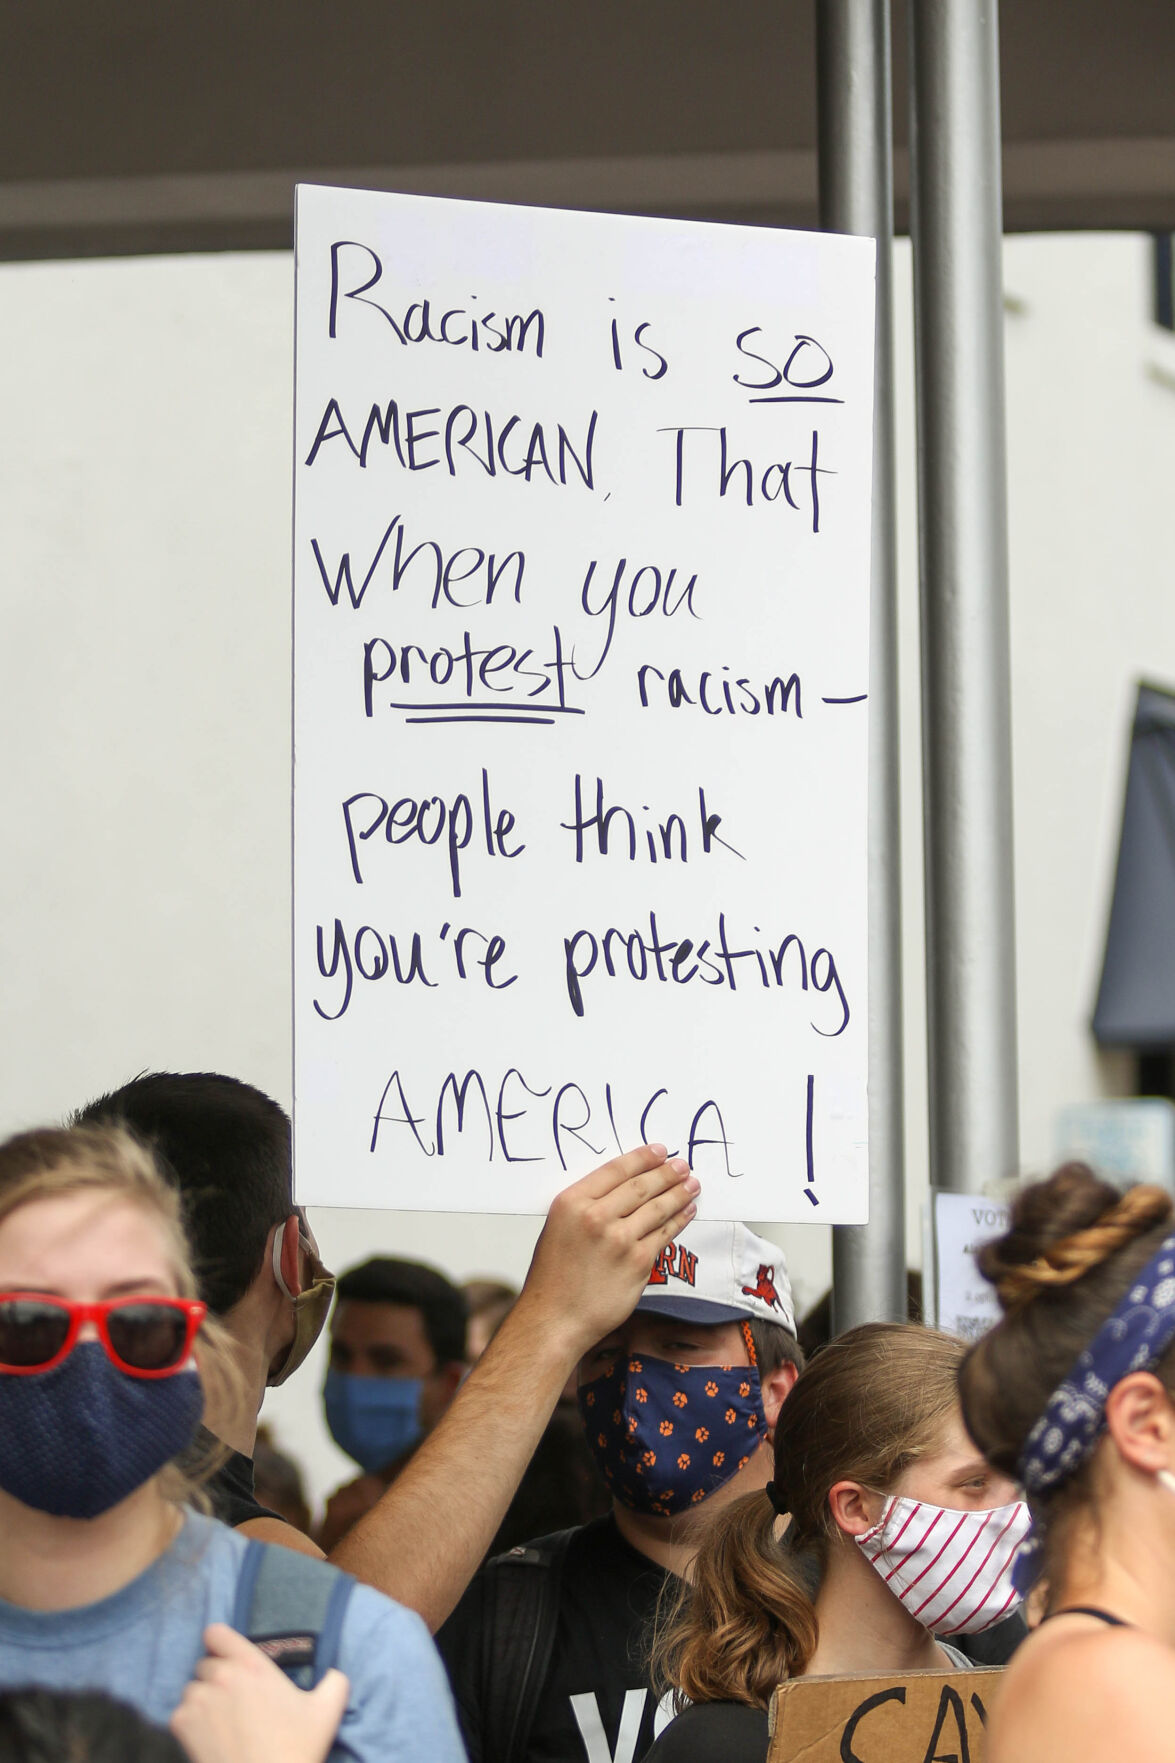 Racism is SO
AMERICAN, That
When you
protest racism —
people think
you're protesting
AMERICA!